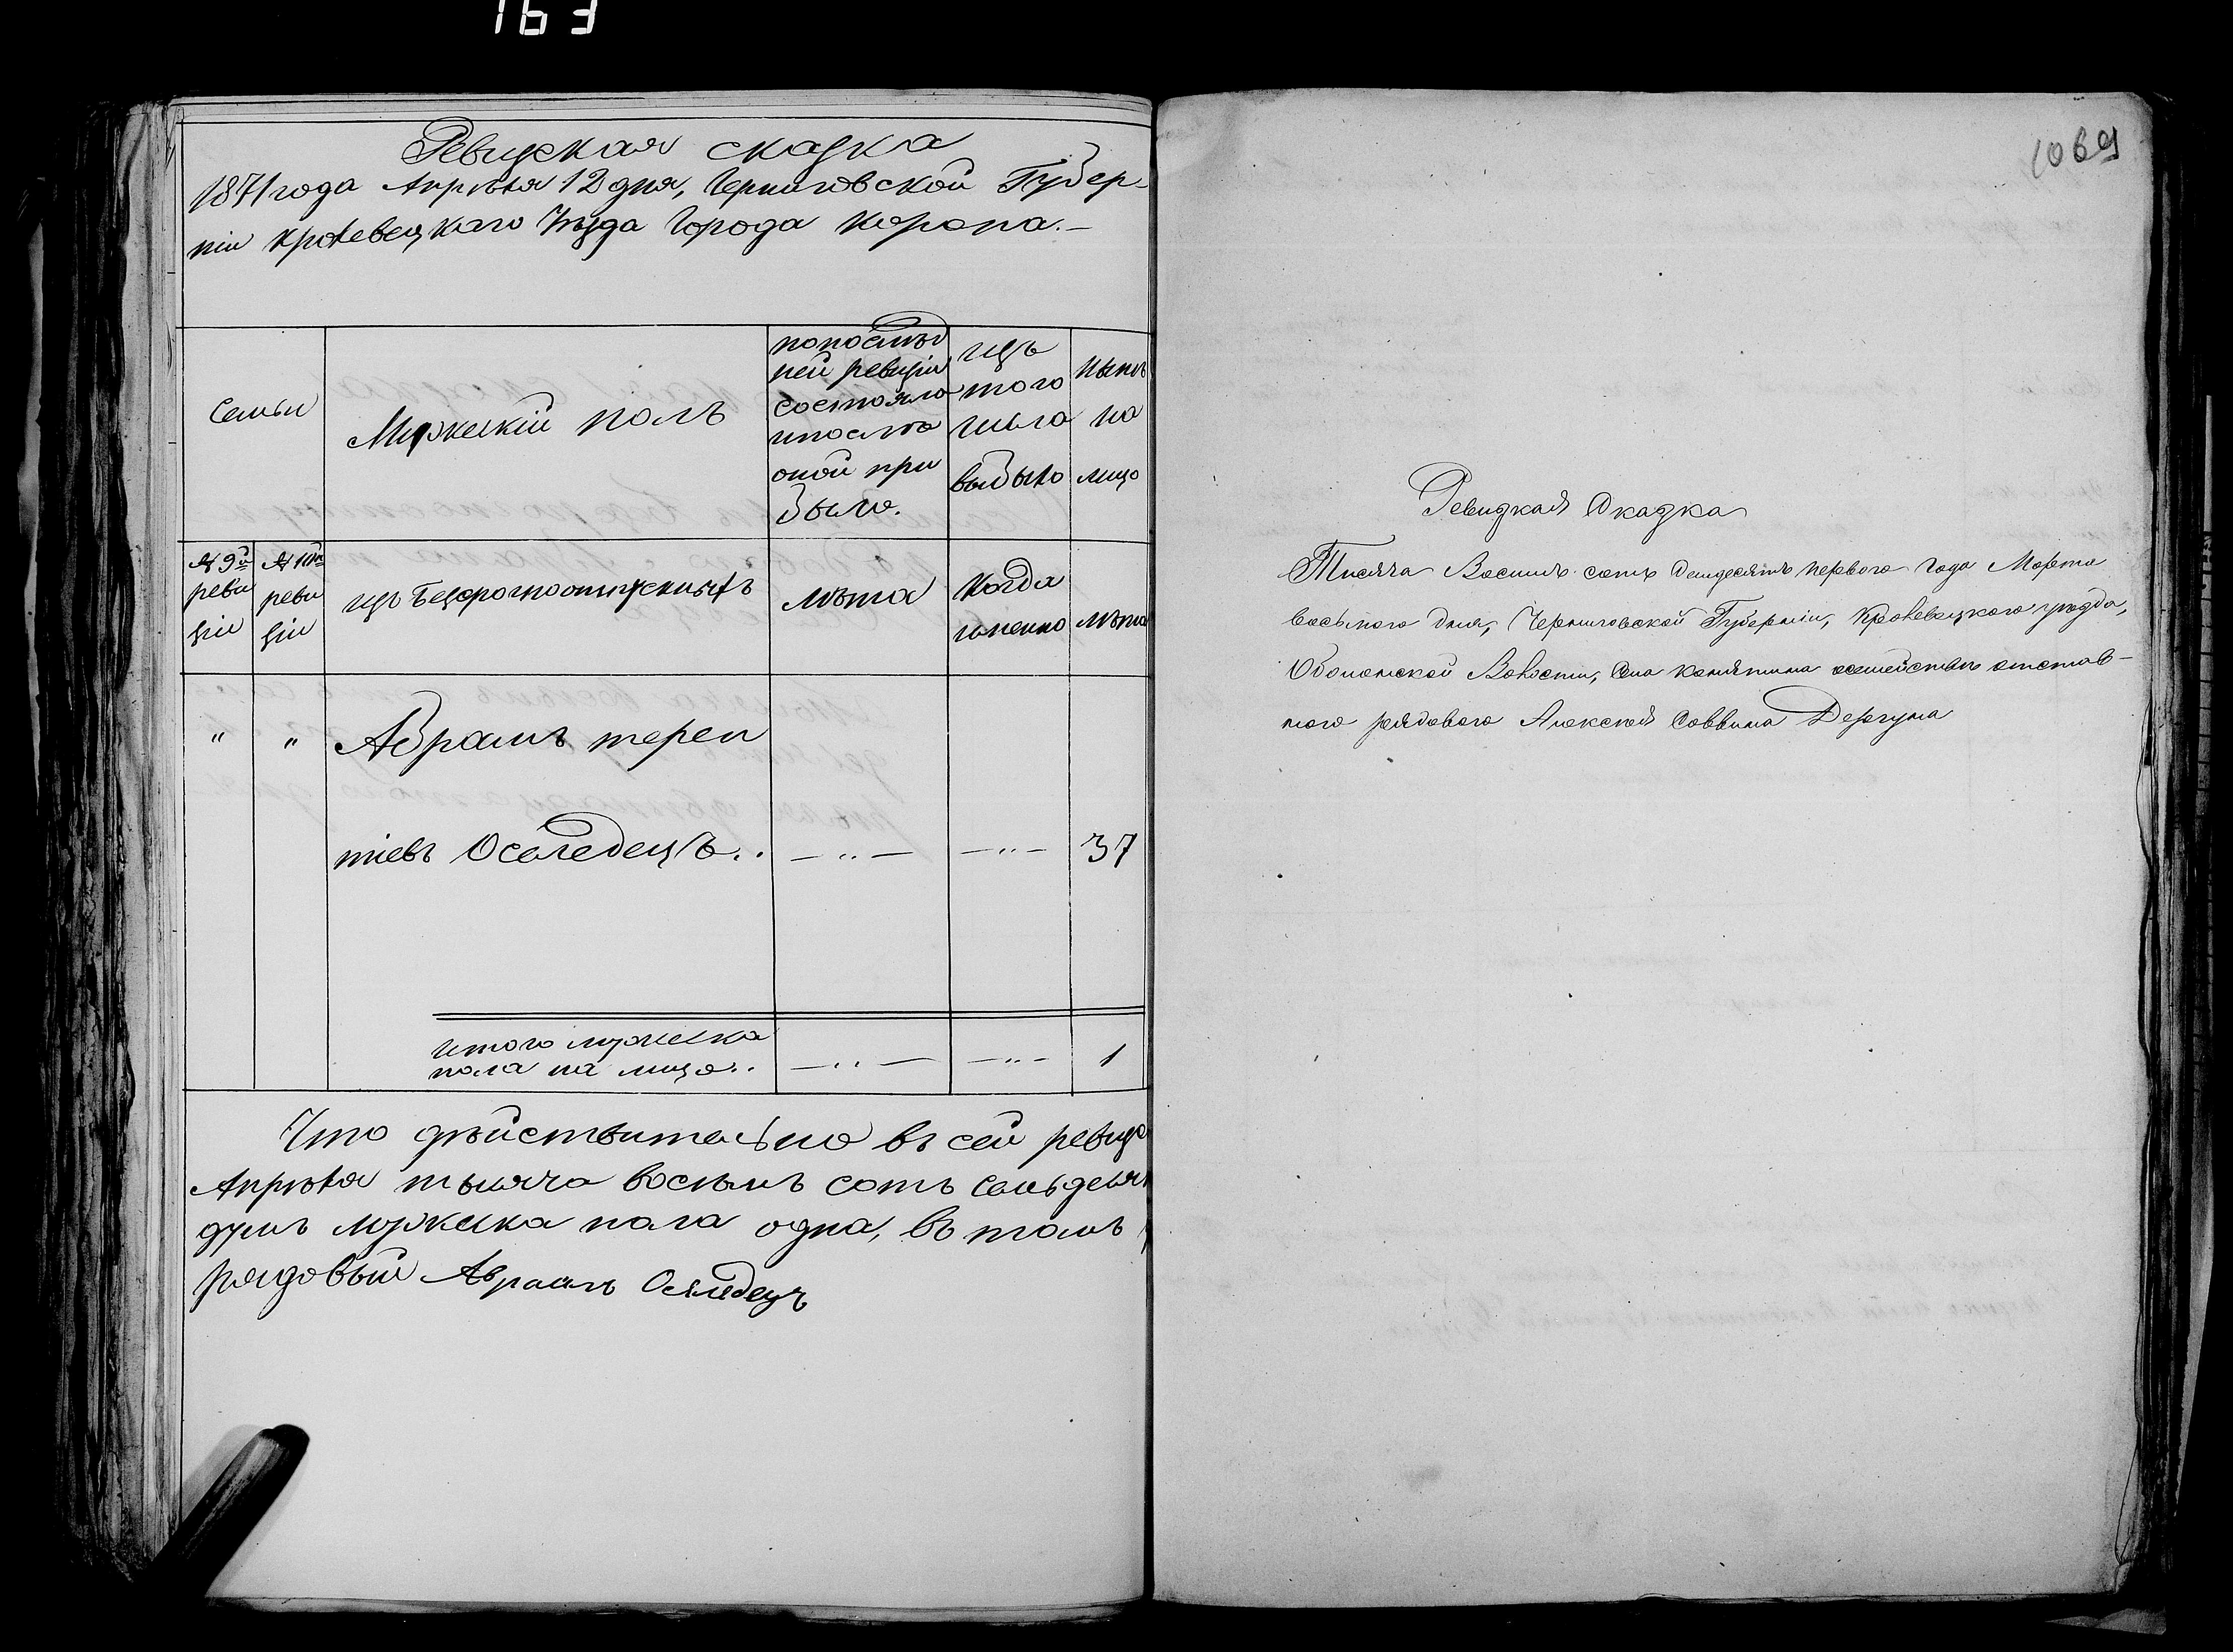 163
Ревизская сказка
1871 года Апрѣля 12 дня, Черниговской Губер-
ніи Кролевецкаго Уѣзда Города Коропа.–
Семьи
Мужескій полъ
по послѣд
ней ревизіи
состояло
и после
оной при
было.
изъ
того
числа
выбыло
нынѣ
на
лицо
№ 9й
реви
зіи
№ 10й
реви
зіи
изъ безсрочноотпускныхъ
лѣта
Когда
именно
лѣта
" " Абрамъ терен
тіевъ Оселедецъ.. —"— —"— 37
итого мужеска
пола на лицо.. —"— —"— 1
Что дѣйствительно въ сей ревизс
Апрѣля тысяча восемь сотъ семьдеся
душъ мужеска пола одна, въ томъ
рядовый Абрамъ Оселедецъ
1069
Ревизкая Сказка
Тисяча Восимь сотъ семдесятъ первого года Марта
восьмого дня, Черниговской Губерніи, Кролевецкого уезда,
Оболонской Волости, Села
рядового Алексея Саввина